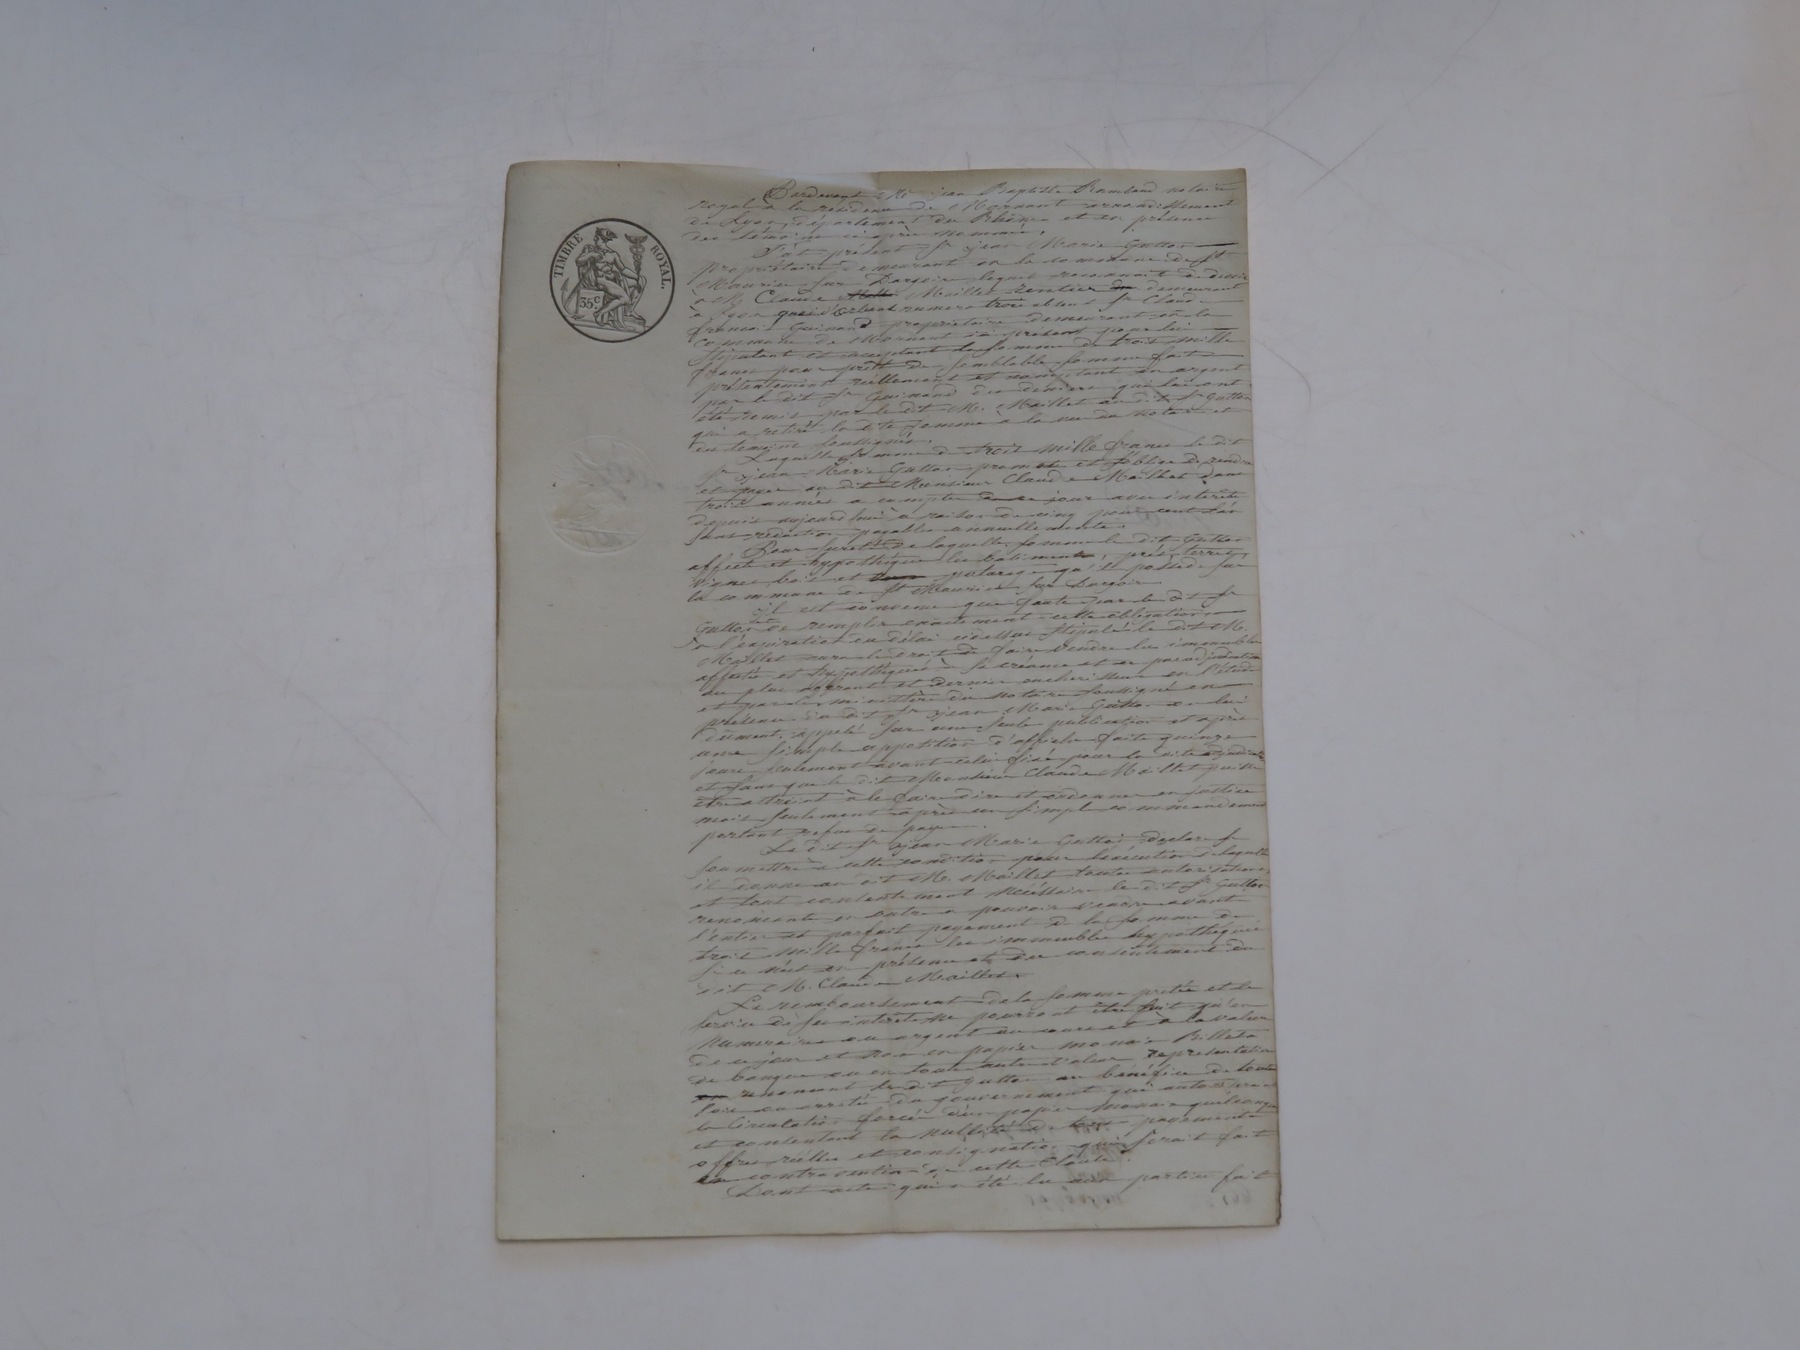 TIMBRE ROYAL.
35c
Pardevant Me jean Baptiste Rambaud notaire
royal à la résidence de Mornant arrondissement
de Lyon, département du Rhône et en présence
des témoins ci après nommés,
fut présent Sr jean Marie Gutton
propriétaire demeurant en la commune de St
Maurice sur Dargoire lequel reconnait et devoir
à M. Claude Maillet rentier demeurant
à Lyon quai d'Orléans numero trois absent Sr Claude
françois Guinand propriétaire demeurant en la
commune de Mornant ici présent pour lui
stipulant et acceptant la somme de trois mille
francs pour prêt de semblable somme fait
présentement réellement et comptant en argent
par le dit Sr Guinand des deniers qui lui ont
été remis par le dit M. Maillet au dit Sr Gutton
qui a retiré la dite somme à la vue du notaire et
des témoins soussignés.
Laquelle somme de trois mille francs le dit
Sr jean Marie Gutton promet et s'oblige de rendre
et payer au dit Monsieur Claude Maillet dans
trois années à compter de ce jour avec intérêts
depuis aujourd'hui à raison de cinq pour cent l'an
sans rédaction payables annuellement.
Pour sureté de laquelle somme le dit Gutton
affecte et hypothèque les batiments, prés, terres,
vignes bois et paturage qu'il possède sur
la commune de St Maurice sur Dargoire
il est convenu que faute par le dit Sr
Gutton de remplir exactement cette obligation
à l'expiration du délai ci dessus stipulé le dit M.
Maillet aura le droit de faire vendre les immeubles
affectés et hypothéqués à sa créance et ce par adjudication
au plus offrant et dernier enchérisseur en l'étude
et par le ministère du notaire soussigné en
présence du dit Sr jean Marie Gutton ou lui
dûment appelé sur une seule publication et après
une simple apposition d'affiche faite quinze
jours seulement avant celui fixé pour la dite adjudication
et sans que le dit Monsieur Claude Maillet puisse
être astreint à le faire dire et ordonner en justice
mais seulement après un simple commandement
portant refus de payer.
Le dit Sr jean Marie Gutton déclare se
soumettre à cette condition pour l'exécution de laquelle
il donne au dit M. Maillet toute autorisation
et tout consentement nécessaire le dit Sr Gutton
renoncant en outre à pouvoir vendre avant
l'entier et parfait payement de la somme de
trois mille francs les immeubles hypothéqués
si ce n'est en présence et du consentement du
dit M. Claude Maillet.
Le remboursement de la somme prêtée et le
service de ses intérêts ne pourront être fait qu'en
numéraire ou argent au cours et à la valeur
de ce jour et non en papier monaie Billets
de banque ou en toute autre valeur représentative
renoncant le dit Gutton au bénéfice de toutes
lois ou arrêtés du gouvernement qui autoriserait
la circulation forcée d'un papier monaie quelconque
et consentant la nullité de tout payement
offres réelles et consignation qui serait fait
en contravention de cette Clause.
Dont acte qui a été lu aux parties fait